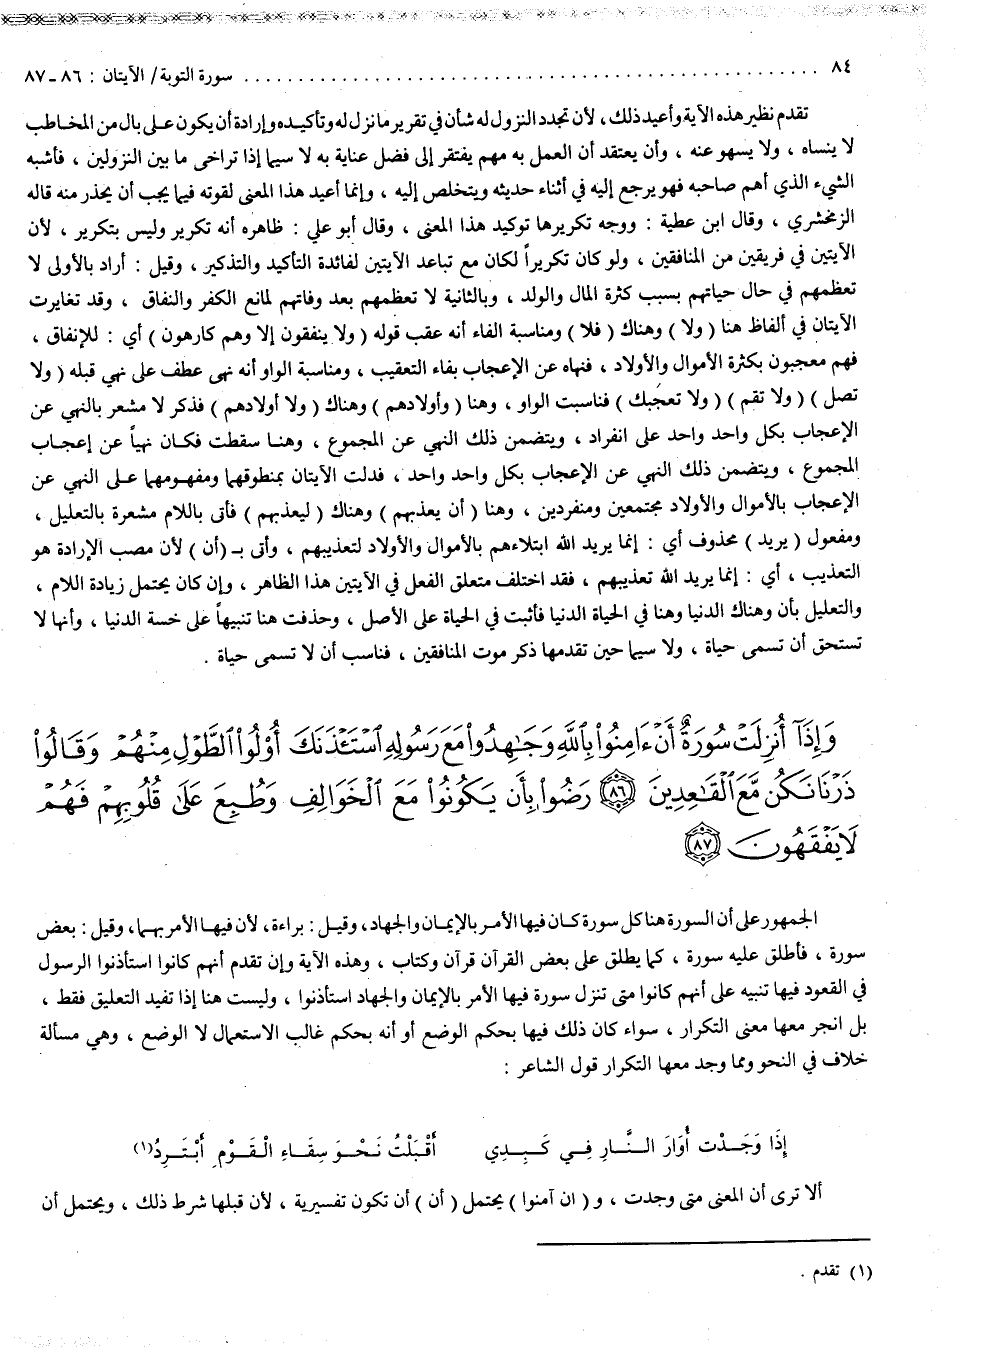 ٨٤ ........................................................ سورة التوبة/ الآيتان : ٨٦-٨٧
تقدم نظير هذه الآية وأعيد ذلك، لأن تجدد النزول له شأن في تقرير ما نزل له وتأكيده وإرادة أن يكون على بال من المخاطب
لا ينساه ، ولا يسهو عنه ، وأن يعتقد أن العمل به مهم يفتقر إلى فضل عناية به لا سيما إذا تراخى ما بين النزولين ، فأشبه
الشيء الذي أهم صاحبه فهو يرجع إليه في أثناء حديثه ويتخلص إليه ، وإنما أعيد هذا المعنى لقوته فيما يجب أن يحذر منه قاله
الزمخشري ، وقال ابن عطية : ووجه تكريرها توكيد هذا المعنى ، وقال أبو علي : ظاهره أنه تكرير وليس بتكرير ، لأن
الآيتين في فريقين من المنافقين ، ولو كان تكريراً لكان مع تباعد الآيتين لفائدة التأكيد والتذكير ، وقيل : أراد بالأولى لا
تعظمهم في حال حياتهم بسبب كثرة المال والولد ، وبالثانية لا تعظمهم بعد وفاتهم لمانع الكفر والنفاق ، وقد تغايرت
الآيتان في ألفاظ هنا ( ولا ) وهناك ( فلا ) ومناسبة الفاء أنه عقب قوله ( ولا ينفقون إلا وهم كارهون ) أي : للإنفاق ،
فهم معجبون بكثرة الأموال والأولاد ، فنهاه عن الإعجاب بفاء التعقيب ، ومناسبة الواو أنه نهى عطف على نهي قبله ( ولا
تصل ) ( ولا تقم ) ( ولا تعجبك ) فناسبت الواو ، وهنا ( وأولادهم ) وهناك ( ولا أولادهم ) فذكر لا مشعر بالنهي عن
الإعجاب بكل واحد واحد على انفراد ، ويتضمن ذلك النهي عن المجموع ، وهنا سقطت فكان نهياً عن إعجاب
المجموع ، ويتضمن ذلك النهي عن الإعجاب بكل واحد واحد ، فدلت الآيتان بمنطوقهما ومفهومهما على النهي عن
الإعجاب بالأموال والأولاد مجتمعين ومنفردين ، وهنا ( أن يعذبهم ) وهناك ( ليعذبهم ) فأتى باللام مشعرة بالتعليل ،
ومفعول ( يريد ) محذوف أي : إنما يريد الله ابتلاءهم بالأموال والأولاد لتعذيبهم ، وأتى بـ(أن ) لأن مصب الإرادة هو
التعذيب ، أي : إنما يريد الله تعذيبهم ، فقد اختلف متعلق الفعل في الآيتين هذا الظاهر ، وإن كان يحتمل زيادة اللام ،
والتعليل بأن وهناك الدنيا وهنا في الحياة الدنيا فأثبت في الحياة على الأصل ، وحذفت هنا تنبيهاً على خسة الدنيا ، وأنها لا
تستحق أن تسمى حياة ، ولا سيما حين تقدمها ذكر موت المنافقين ، فناسب أن لا تسمى حياة .
وَإِذَآ أُنزِلَتْ سُورَةٌ أَنْ ءَامِنُوا۟ بِٱللَّهِ وَجَـٰهِدُوا۟ مَعَ رَسُولِهِ ٱسْتَـْٔذَنَكَ أُو۟لُوا۟ ٱلطَّوْلِ مِنْهُمْ وَقَالُوا۟
ذَرْنَا نَكُن مَّعَ ٱلْقَـٰعِدِينَ ٨٦ رَضُوا۟ بِأَن يَكُونُوا۟ مَعَ ٱلْخَوَالِفِ وَطُبِعَ عَلَىٰ قُلُوبِهِمْ فَهُمْ
لَا يَفْقَهُونَ ٨٧
الجمهور على أن السورة هنا كل سورة كان فيها الأمر بالإيمان والجهاد، وقيل : براءة، لأن فيها الأمر بهما، وقيل : بعض
سورة ، فأطلق عليه سورة ، كما يطلق على بعض القرآن قرآن وكتاب ، وهذه الآية وإن تقدم أنهم كانوا استأذنوا الرسول
في القعود فيها تنبيه على أنهم كانوا متى تنزل سورة فيها الأمر بالإيمان والجهاد استأذنوا ، وليست هنا إذا تفيد التعليق فقط ،
بل انجر معها معنى التكرار ، سواء كان ذلك فيها بحكم الوضع أو أنه بحكم غالب الاستعمال لا الوضع ، وهي مسألة
خلاف في النحو ومما وجد معها التكرار قول الشاعر :
إِذَا وَجَدْت أُوَارَ النَّارِ فِي كَبِدِي أَقْبَلْتُ نَحْوَ سِقَاءِ الْقَوْمِ أَبْتَرِدُ(١)
ألا ترى أن المعنى متى وجدت ، و ( ان آمنوا ) يحتمل ( أن ) أن تكون تفسيرية ، لأن قبلها شرط ذلك ، ويحتمل أن
(١) تقدم .